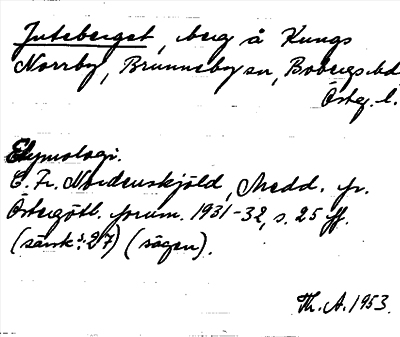 Juteberget, berg å Kungs
Norrby, Brunneby sn, Bobergs hd
Östg. l.
Etymologi.
C. Fr. Nordenskjöld, Medd. fr.
Östergötl. fornm. 1931-32, s. 25 ff.
(särsk. s. 27) (sägen).
Th. A. 1953.